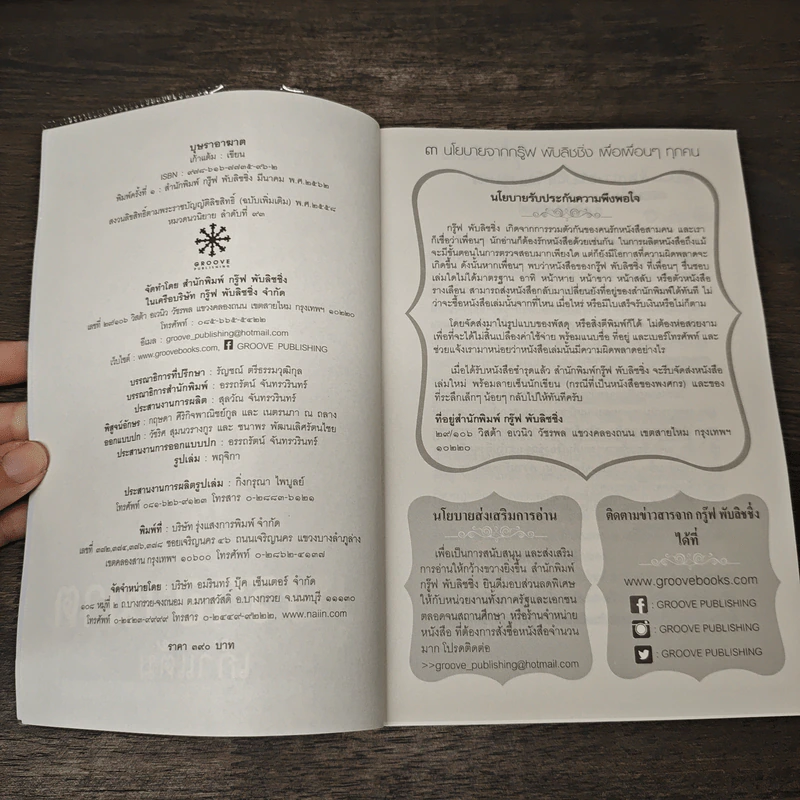 บุษราอาฆาต
เก้าแต้ม : เขียน
ISBN : ๙๗๘-๖๑๖-๗๗๓๕-๙๖-๒
พิมพ์ครั้งที่ ๑ : สำนักพิมพ์ กรู๊ฟ พับลิชชิ่ง มีนาคม พ.ศ.๒๕๖๒
สงวนลิขสิทธิ์ตามพระราชบัญญัติลิขสิทธิ์ (ฉบับเพิ่มเติม) พ.ศ.๒๕๕๘
หมวดนวนิยาย ลำดับที่ ๙๓
GROOVE
PUBLISHING
จัดทำโดย สำนักพิมพ์ กรู๊ฟ พับลิชชิ่ง
ในเครือบริษัท กรู๊ฟ พับลิชชิ่ง จำกัด
เลขที่ ๒๙/๑๐๖ วิสต้า อเวนิว วัชรพล แขวงคลองถนน เขตสายไหม กรุงเทพฯ ๑๐๒๒๐
โทรศัพท์ : ๐๘๕-๖๖๕-๕๔๒๒
อีเมล : groove_publishing@hotmail.com
เว็บไซต์ : www.groovebooks.com, GROOVE PUBLISHING
บรรณาธิการที่ปรึกษา : รัญชณ์ ตรีธรรมวุฒิกุล
บรรณาธิการสำนักพิมพ์ : อรรถรัตน์ จันทรวรินทร์
ประสานงานการผลิต : สุลวัณ จันทรวรินทร์
พิสูจน์อักษร : กฤษดา ศิริกิจพาณิชย์กูล และ เนตรนภา ณ ถลาง
ออกแบบปก : วัชริศ สุมนวรางกูร และ ชนาพร พัฒนเลิศรัตนไชย
ประสานงานการออกแบบปก : อรรถรัตน์ จันทรวรินทร์
รูปเล่ม : พฤจิกา
ประสานงานการผลิตรูปเล่ม : กิ่งกรุณา ไพบูลย์
โทรศัพท์ ๐๘๑-๖๒๖-๙๑๒๓ โทรสาร ๐-๒๘๘๓-๖๑๒๑
พิมพ์ที่ : บริษัท รุ่งแสงการพิมพ์ จำกัด
เลขที่ ๓๗๒,๓๗๔,๓๗๖,๓๗๘ ซอยเจริญนคร ๔๖ ถนนเจริญนคร แขวงบางลำภูล่าง
เขตคลองสาน กรุงเทพฯ ๑๐๖๐๐ โทรศัพท์ ๐-๒๘๖๒-๔๑๓๗
จัดจำหน่ายโดย : บริษัท อมรินทร์ บุ๊ค เซ็นเตอร์ จำกัด
๑๐๘ หมู่ที่ ๒ ถ.บางกรวย-จงถนอม ต.มหาสวัสดิ์ อ.บางกรวย จ.นนทบุรี ๑๑๑๓๐
โทรศัพท์ ๐-๒๔๒๓-๙๙๙๙ โทรสาร ๐-๒๔๔๙-๙๒๒๒, www.naiin.com
ราคา ๓๙๐ บาท
๓ นโยบายจากกรู๊ฟ พับลิชชิ่ง เพื่อเพื่อนๆ ทุกคน
นโยบายรับประกันความพึงพอใจ
กรู๊ฟ พับลิชชิ่ง เกิดจากการรวมตัวกันของคนรักหนังสือสามคน และเรา
ก็เชื่อว่าเพื่อนๆ นักอ่านก็ต้องรักหนังสือด้วยเช่นกัน ในการผลิตหนังสือถึงแม้
จะมีขั้นตอนในการตรวจสอบมากเพียงใด แต่ก็ยังมีโอกาสที่ความผิดพลาดจะ
เกิดขึ้น ดังนั้นหากเพื่อนๆ พบว่าหนังสือของกรู๊ฟ พับลิชชิ่ง ที่เพื่อนๆ ชื่นชอบ
เล่มใดไม่ได้มาตรฐาน อาทิ หน้าหาย หน้าขาว หน้าสลับ หรือตัวหนังสือ
รางเลือน สามารถส่งหนังสือกลับมาเปลี่ยนยังที่อยู่ของสำนักพิมพ์ได้ทันที ไม่
ว่าจะซื้อหนังสือเล่มนั้นจากที่ไหน เมื่อไหร่ หรือมีใบเสร็จรับเงินหรือไม่ก็ตาม
โดยจัดส่งมาในรูปแบบของพัสดุ หรือสิ่งตีพิมพ์ก็ได้ ไม่ต้องห่อสวยงาม
เพื่อที่จะได้ไม่สิ้นเปลืองค่าใช้จ่าย พร้อมแนบชื่อ ที่อยู่ และเบอร์โทรศัพท์ และ
ช่วยแจ้งเรามาหน่อยว่าหนังสือเล่มนั้นมีความผิดพลาดอย่างไร
เมื่อได้รับหนังสือชำรุดแล้ว สำนักพิมพ์กรู๊ฟ พับลิชชิ่ง จะรีบจัดส่งหนังสือ
เล่มใหม่ พร้อมลายเซ็นนักเขียน (กรณีที่เป็นหนังสือของพงศกร) และของ
ที่ระลึกเล็กๆ น้อยๆ กลับไปให้ทันทีครับ
ที่อยู่สำนักพิมพ์ กรู๊ฟ พับลิชชิ่ง
๒๙/๑๐๖ วิสต้า อเวนิว วัชรพล แขวงคลองถนน เขตสายไหม กรุงเทพฯ
๑๐๒๒๐
นโยบายส่งเสริมการอ่าน
เพื่อเป็นการสนับสนุน และส่งเสริม
การอ่านให้กว้างขวางยิ่งขึ้น สำนักพิมพ์
กรู๊ฟ พับลิชชิ่ง ยินดีมอบส่วนลดพิเศษ
ให้กับหน่วยงานทั้งภาครัฐและเอกชน
ตลอดจนสถานศึกษา หรือร้านจำหน่าย
หนังสือ ที่ต้องการสั่งซื้อหนังสือจำนวน
มาก โปรดติดต่อ
>>groove_publishing@hotmail.com
ติดตามข่าวสารจาก กรู๊ฟ พับลิชชิ่ง
ได้ที่
www.groovebooks.com
: GROOVE PUBLISHING
: GROOVE PUBLISHING
: GROOVE PUBLISHING